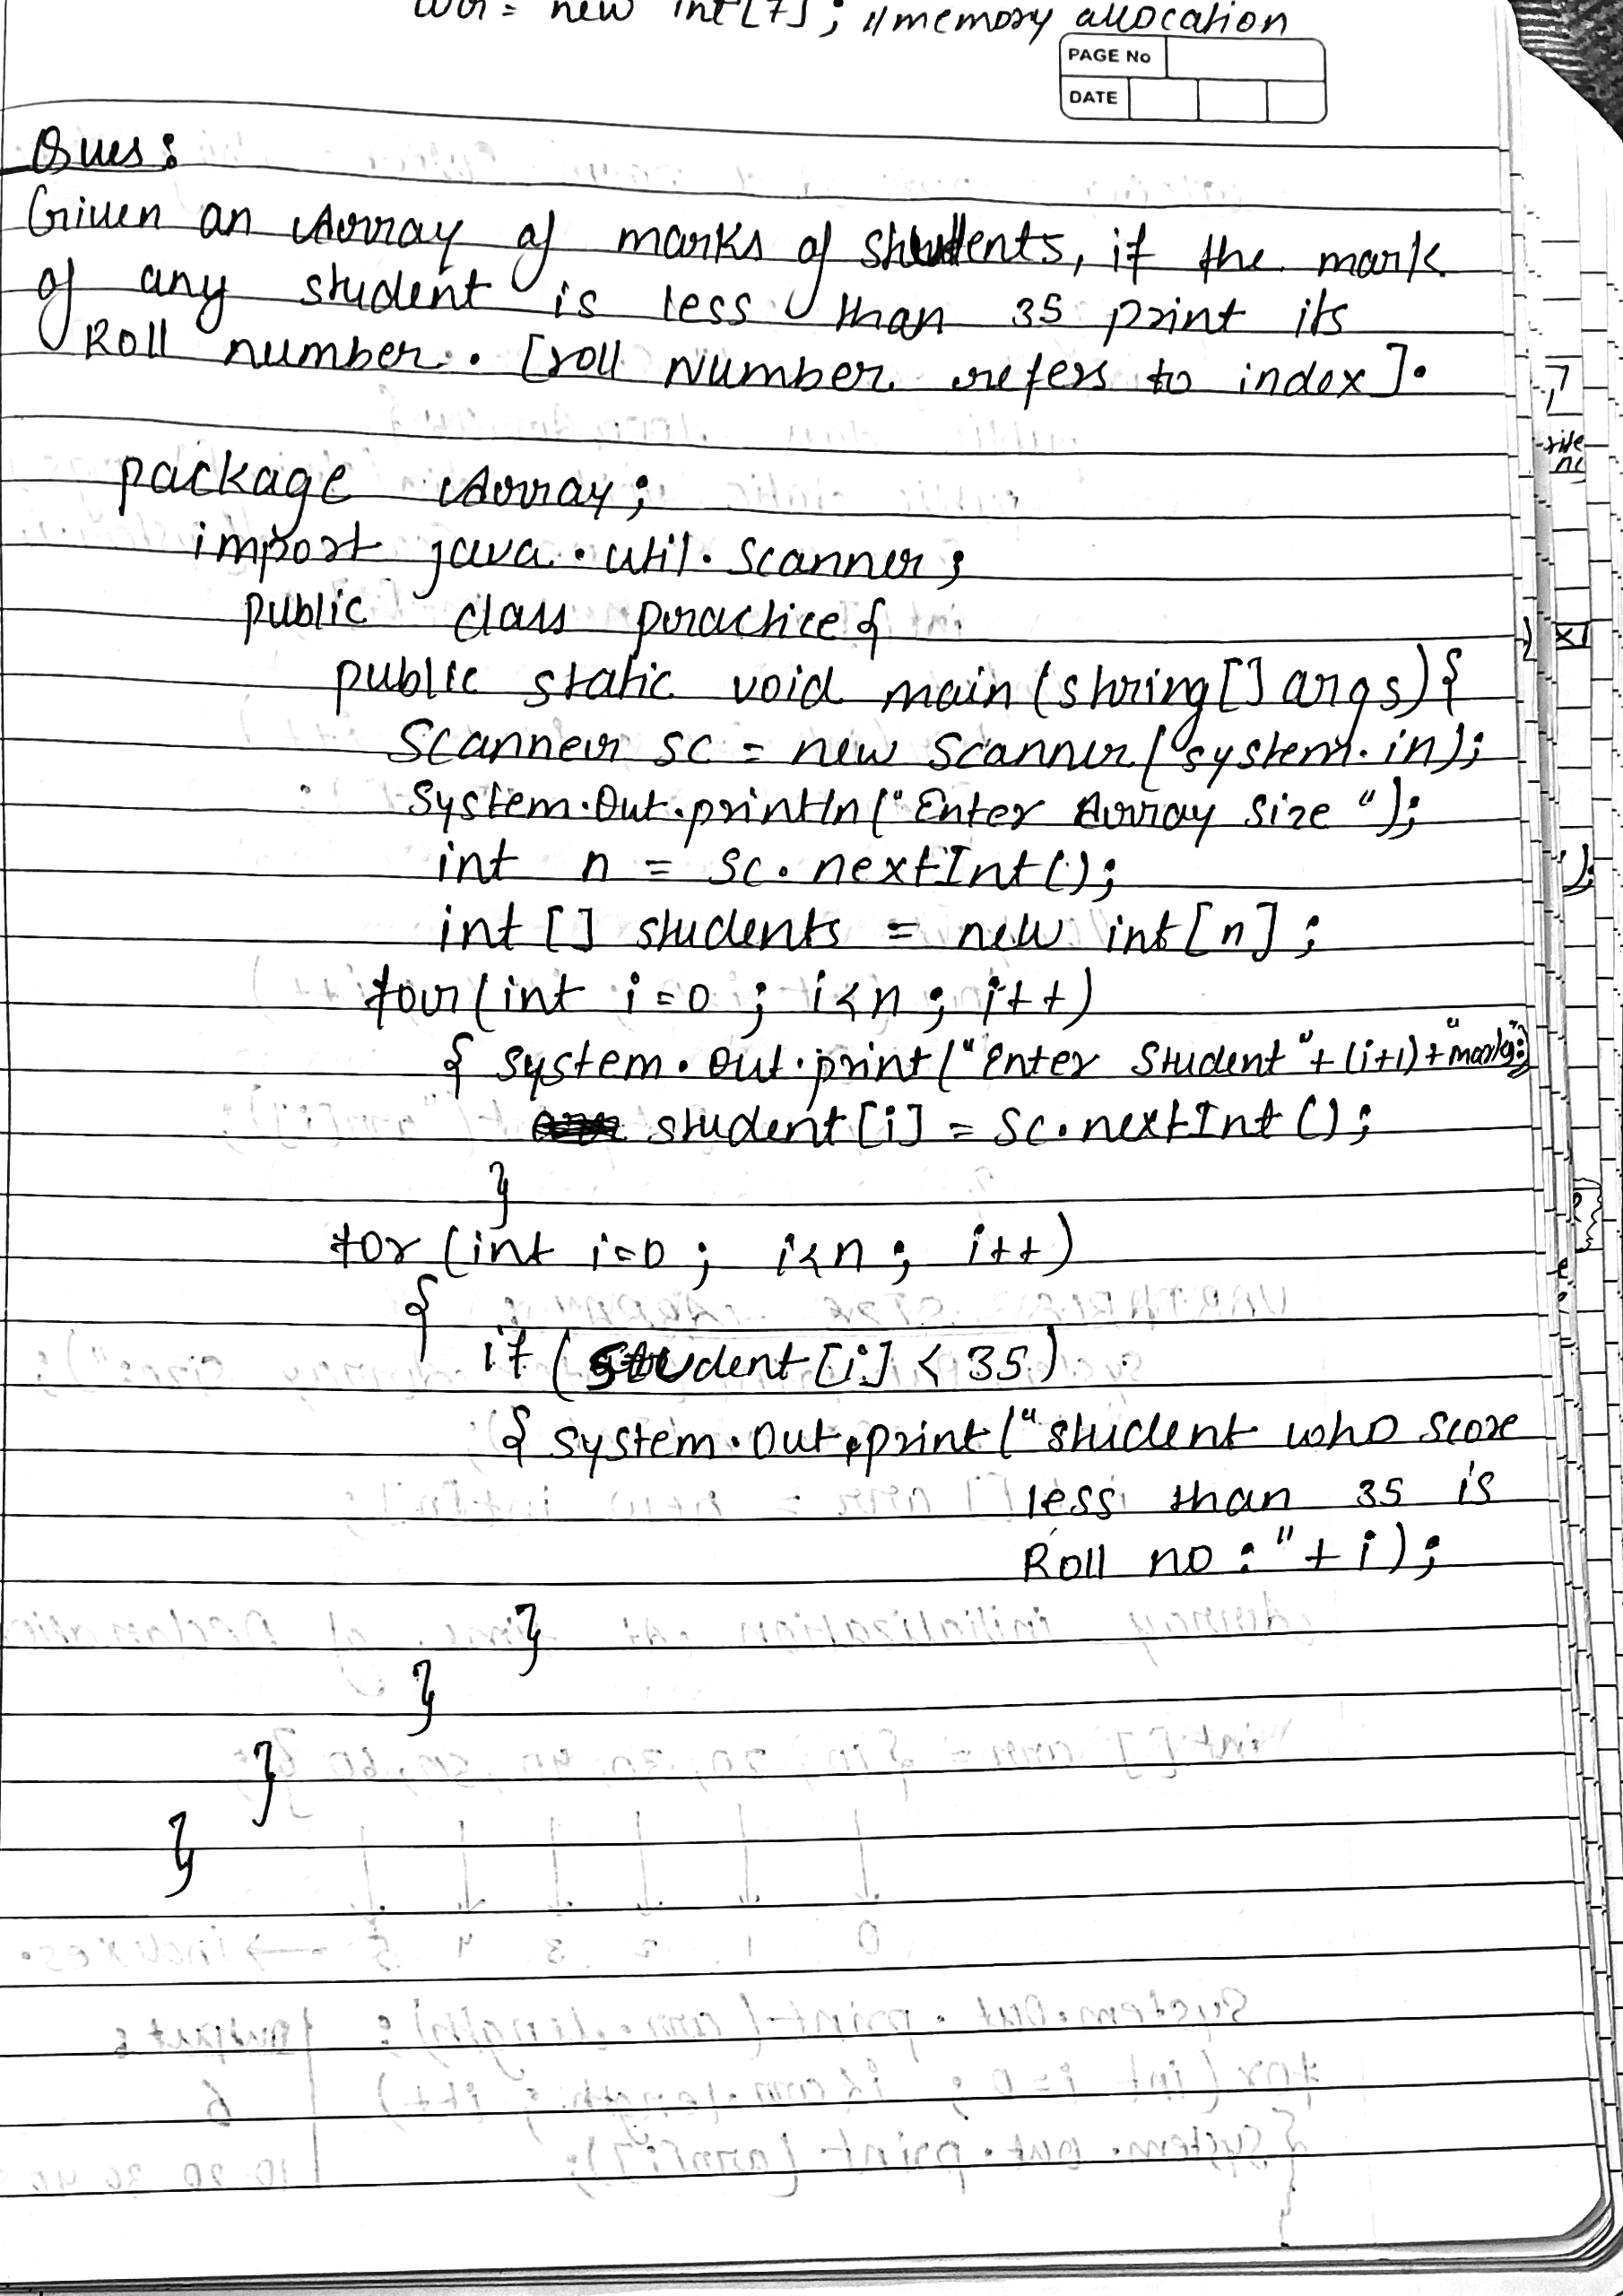 arr = new int[7]; //memory allocation
PAGE No
DATE
Ques:
Given an Array of marks of students, if the mark
of any student is less than 35 print its
Roll number. [roll Number refers to index].
package Array;
import java.util.Scanner;
public class practice{
public static void main (string[] args){
Scanner sc = new Scanner(system.in);
System.Out.println("Enter Array Size");
int n = sc.nextInt();
int [] students = new int[n];
for(int i=0; i<n; i++)
{ system.out.print("Enter Student"+(i+1)+"marks:");
student[i] = sc.nextInt();
}
for (int i=0; i<n; i++)
{
if (student[i] < 35)
{ system.out.print("student who score
less than 35 is
Roll no:"+i);
}
}
}
}